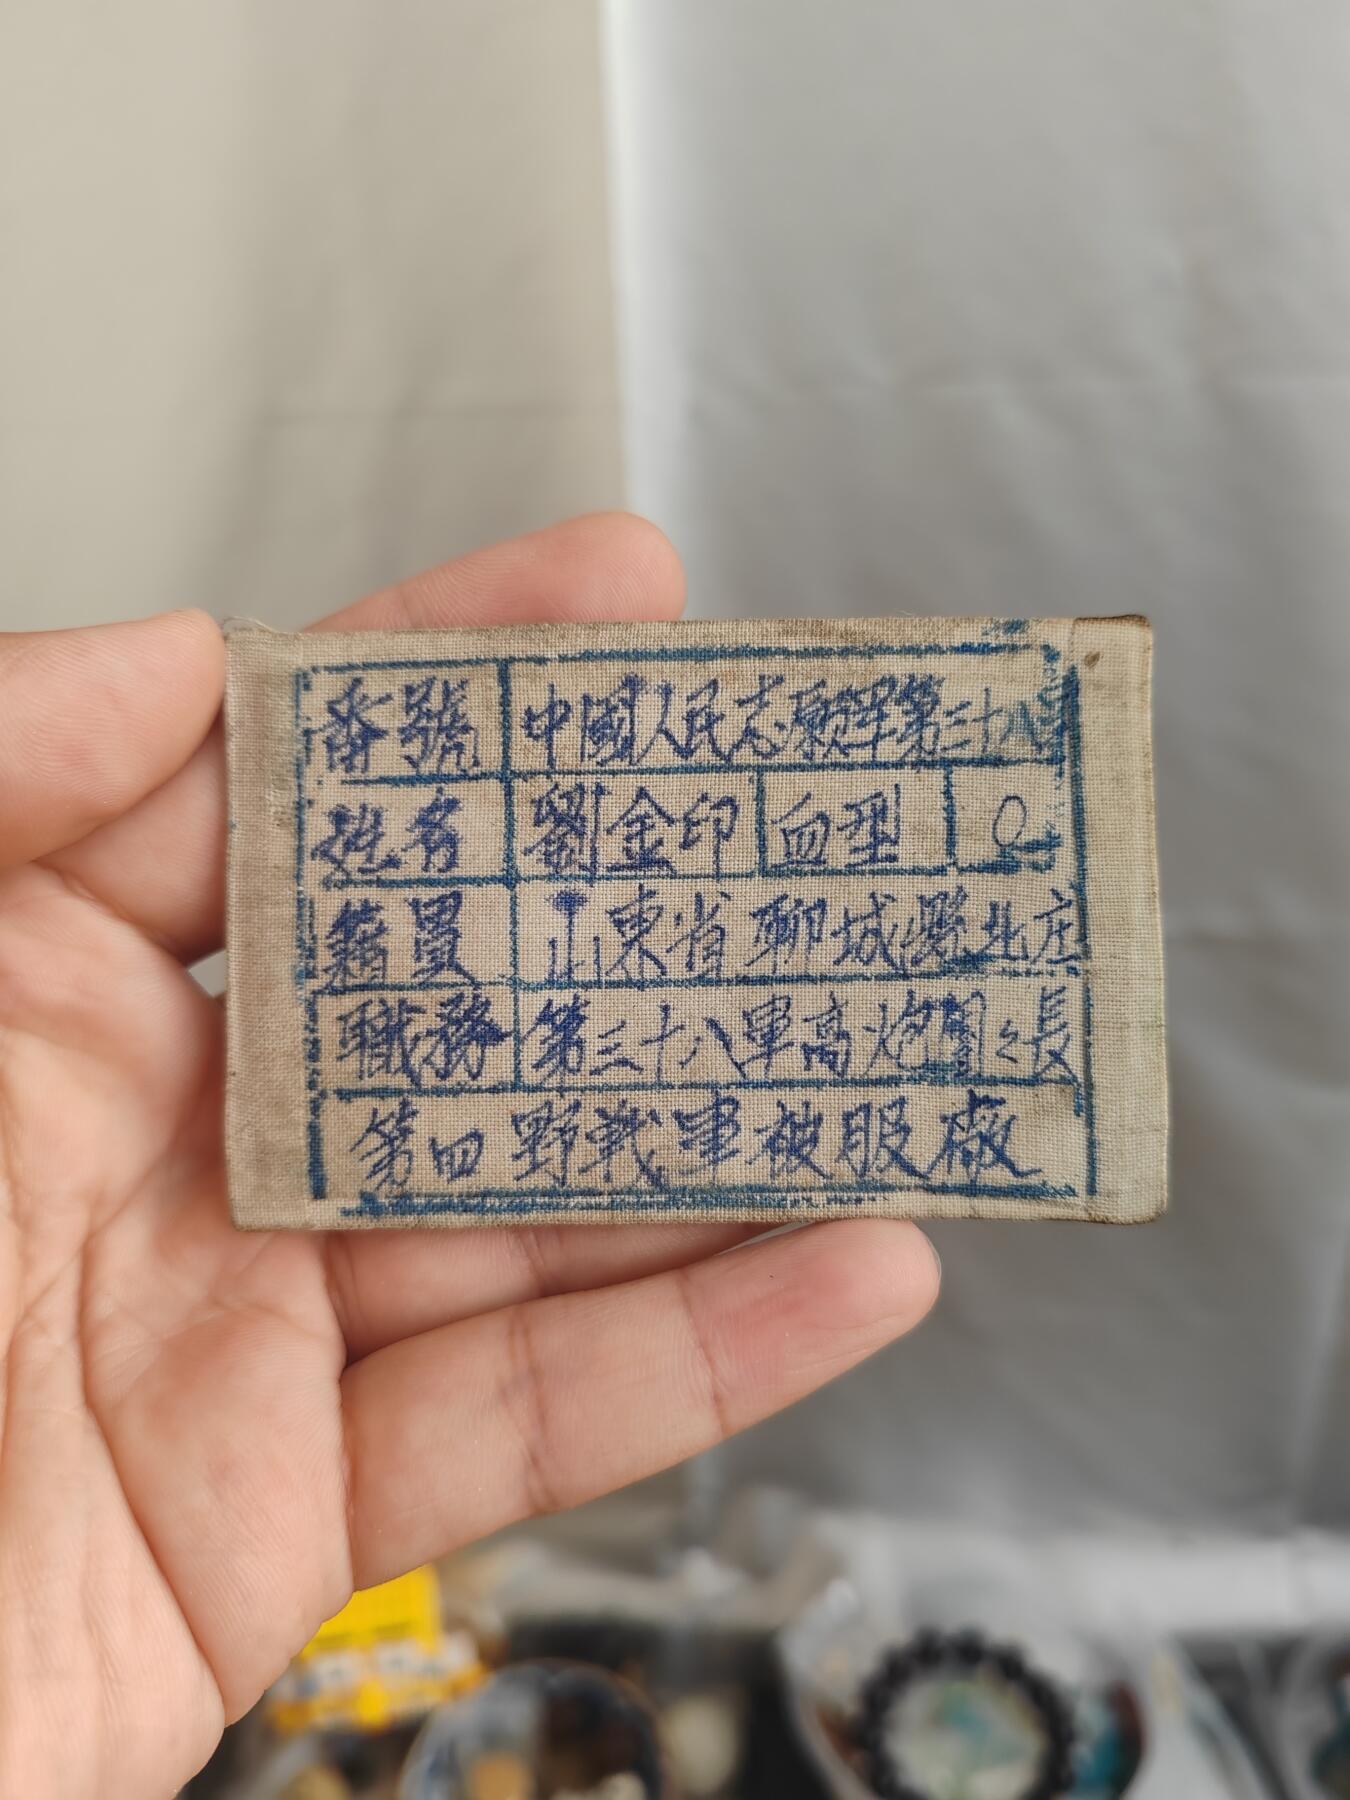 番號 中國人民志願軍第三十八軍
姓名 劉金印 血型 O
籍貫 山東省聊城縣北庄
職務 第三十八軍高炮團之長
第四野戰軍被服廠